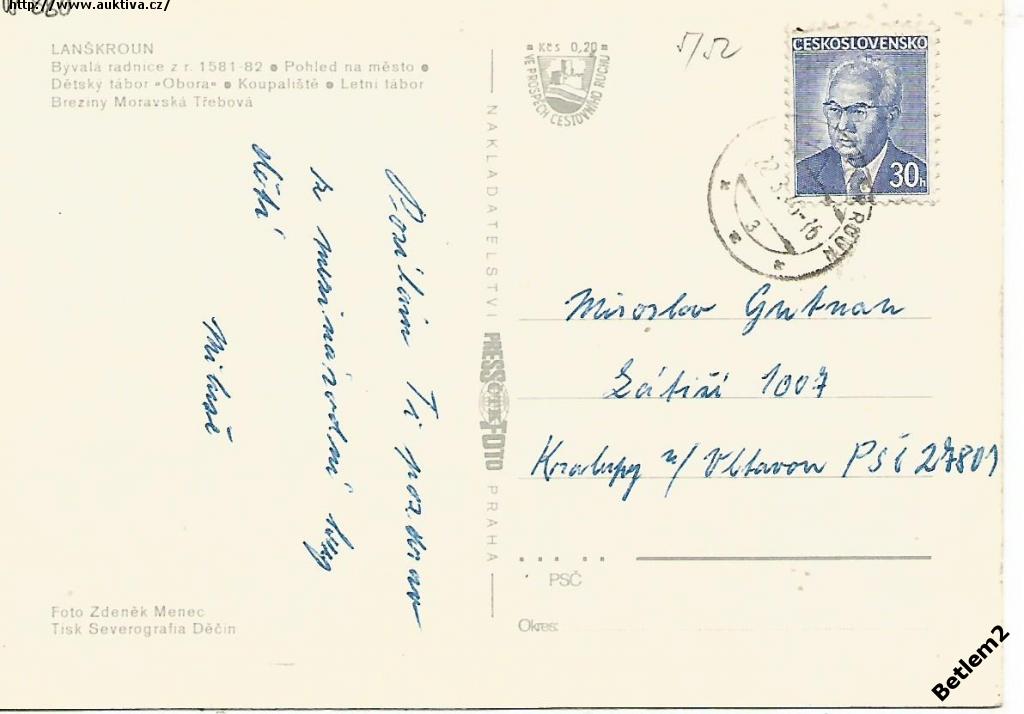 http://www.auktiva.cz/
LANŠKROUN
Bývalá radnice z r. 1581-82 ● Pohled na město ●
Dětský tábor »Obora« ● Koupaliště ● Letní tábor
Březiny Moravská Třebová
Posílám Ti pozdrav
z mezinárodní
dětí
Miluše
Foto Zdeněk Menec
Tisk Severografia Děčín
NAKLADATELSTVÍ PRESSFOTO PRAHA
Kčs 0,20
VE PROSPĚCH CESTOVNÍHO RUCHU
ČESKOSLOVENSKO
30h
Miroslav Gutman
Zátiší 1007
Kralupy n/ Vltavou PSČ 27801
PSČ
Okres:
Betlem2